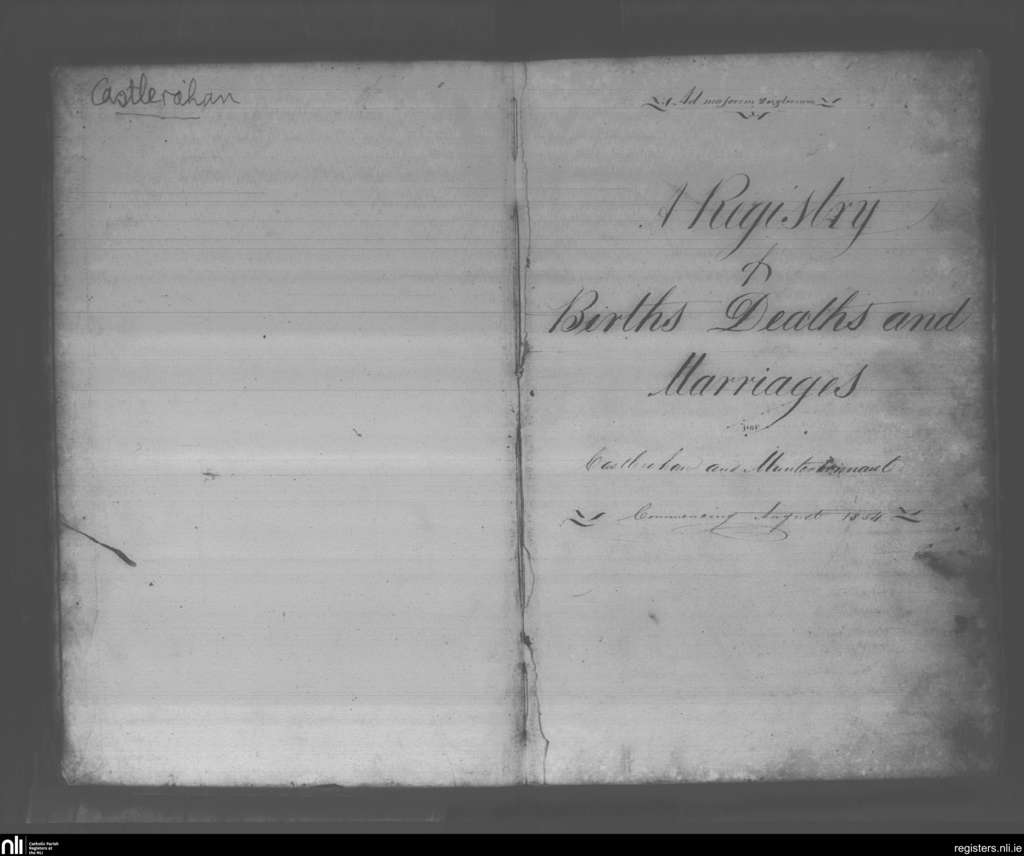 Castlerahan
Ad majorem Dei gloriam
A Registry
of
Births Deaths and
Marriages
for
Castlerahan and Munterconnaut
Commencing August 1854
nli
Catholic Parish
Registers at
the NLI
registers.nli.ie